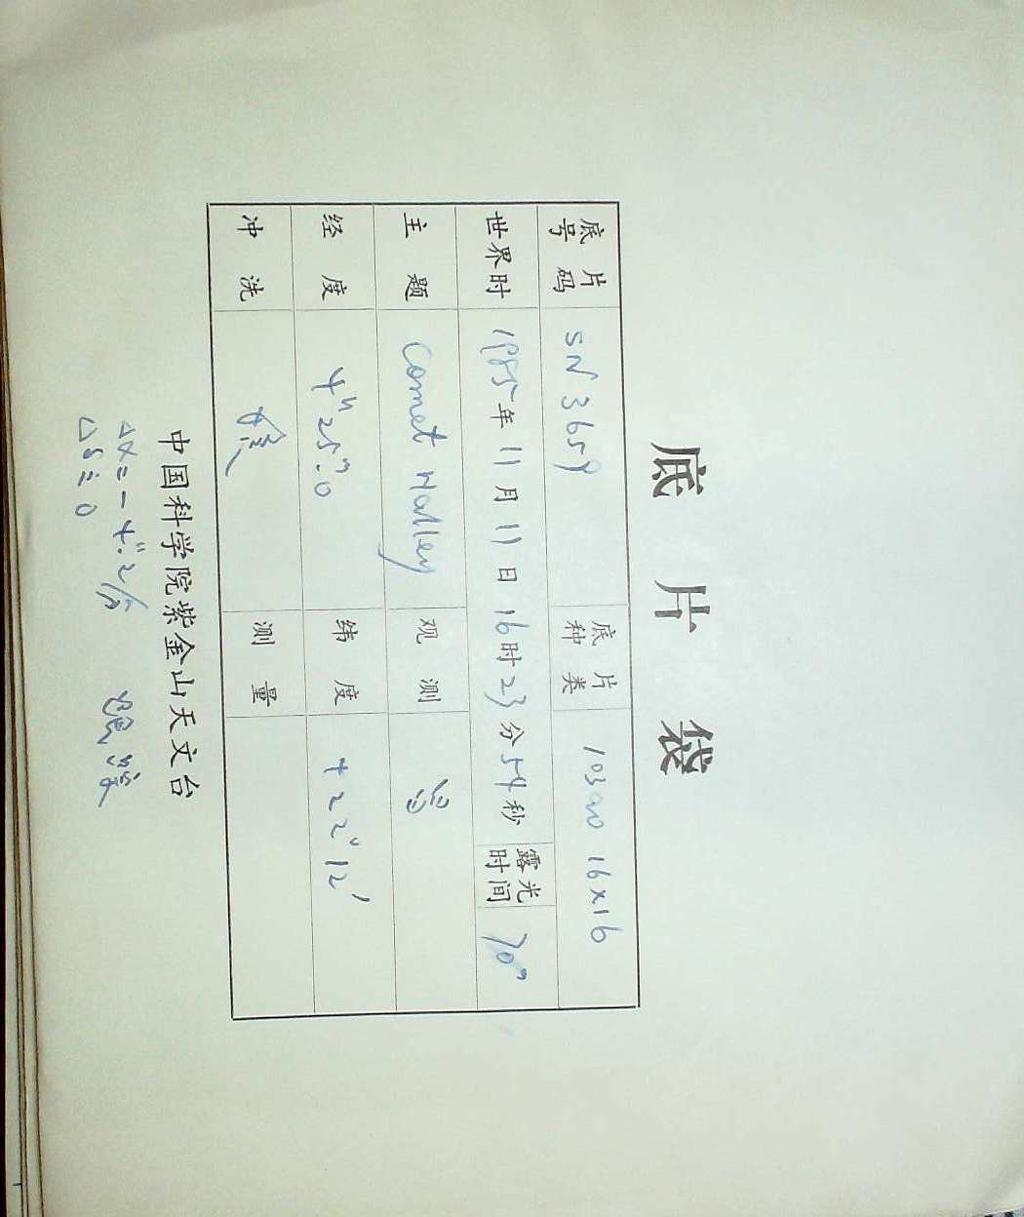 底片袋
底片号码 SN3659 底片种类 103aO 16×16
世界时 1985年11月11日16时23分54秒 露光时间
主题 Comet Halley 观测
经度 4h25m.0 纬度 +22°12′
冲洗 测量
中国科学院紫金山天文台
Δα=-4″.2/分
Δδ=0